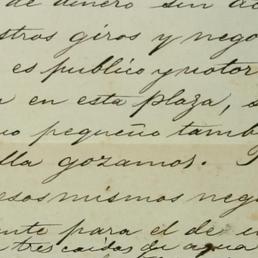 de dinero sin
stros giros y nego
es publico y notor
en esta plaza, s
uo pequeño tamb
lla gozamos.
esos mismos neg
nte para el de
tres caidas de agua